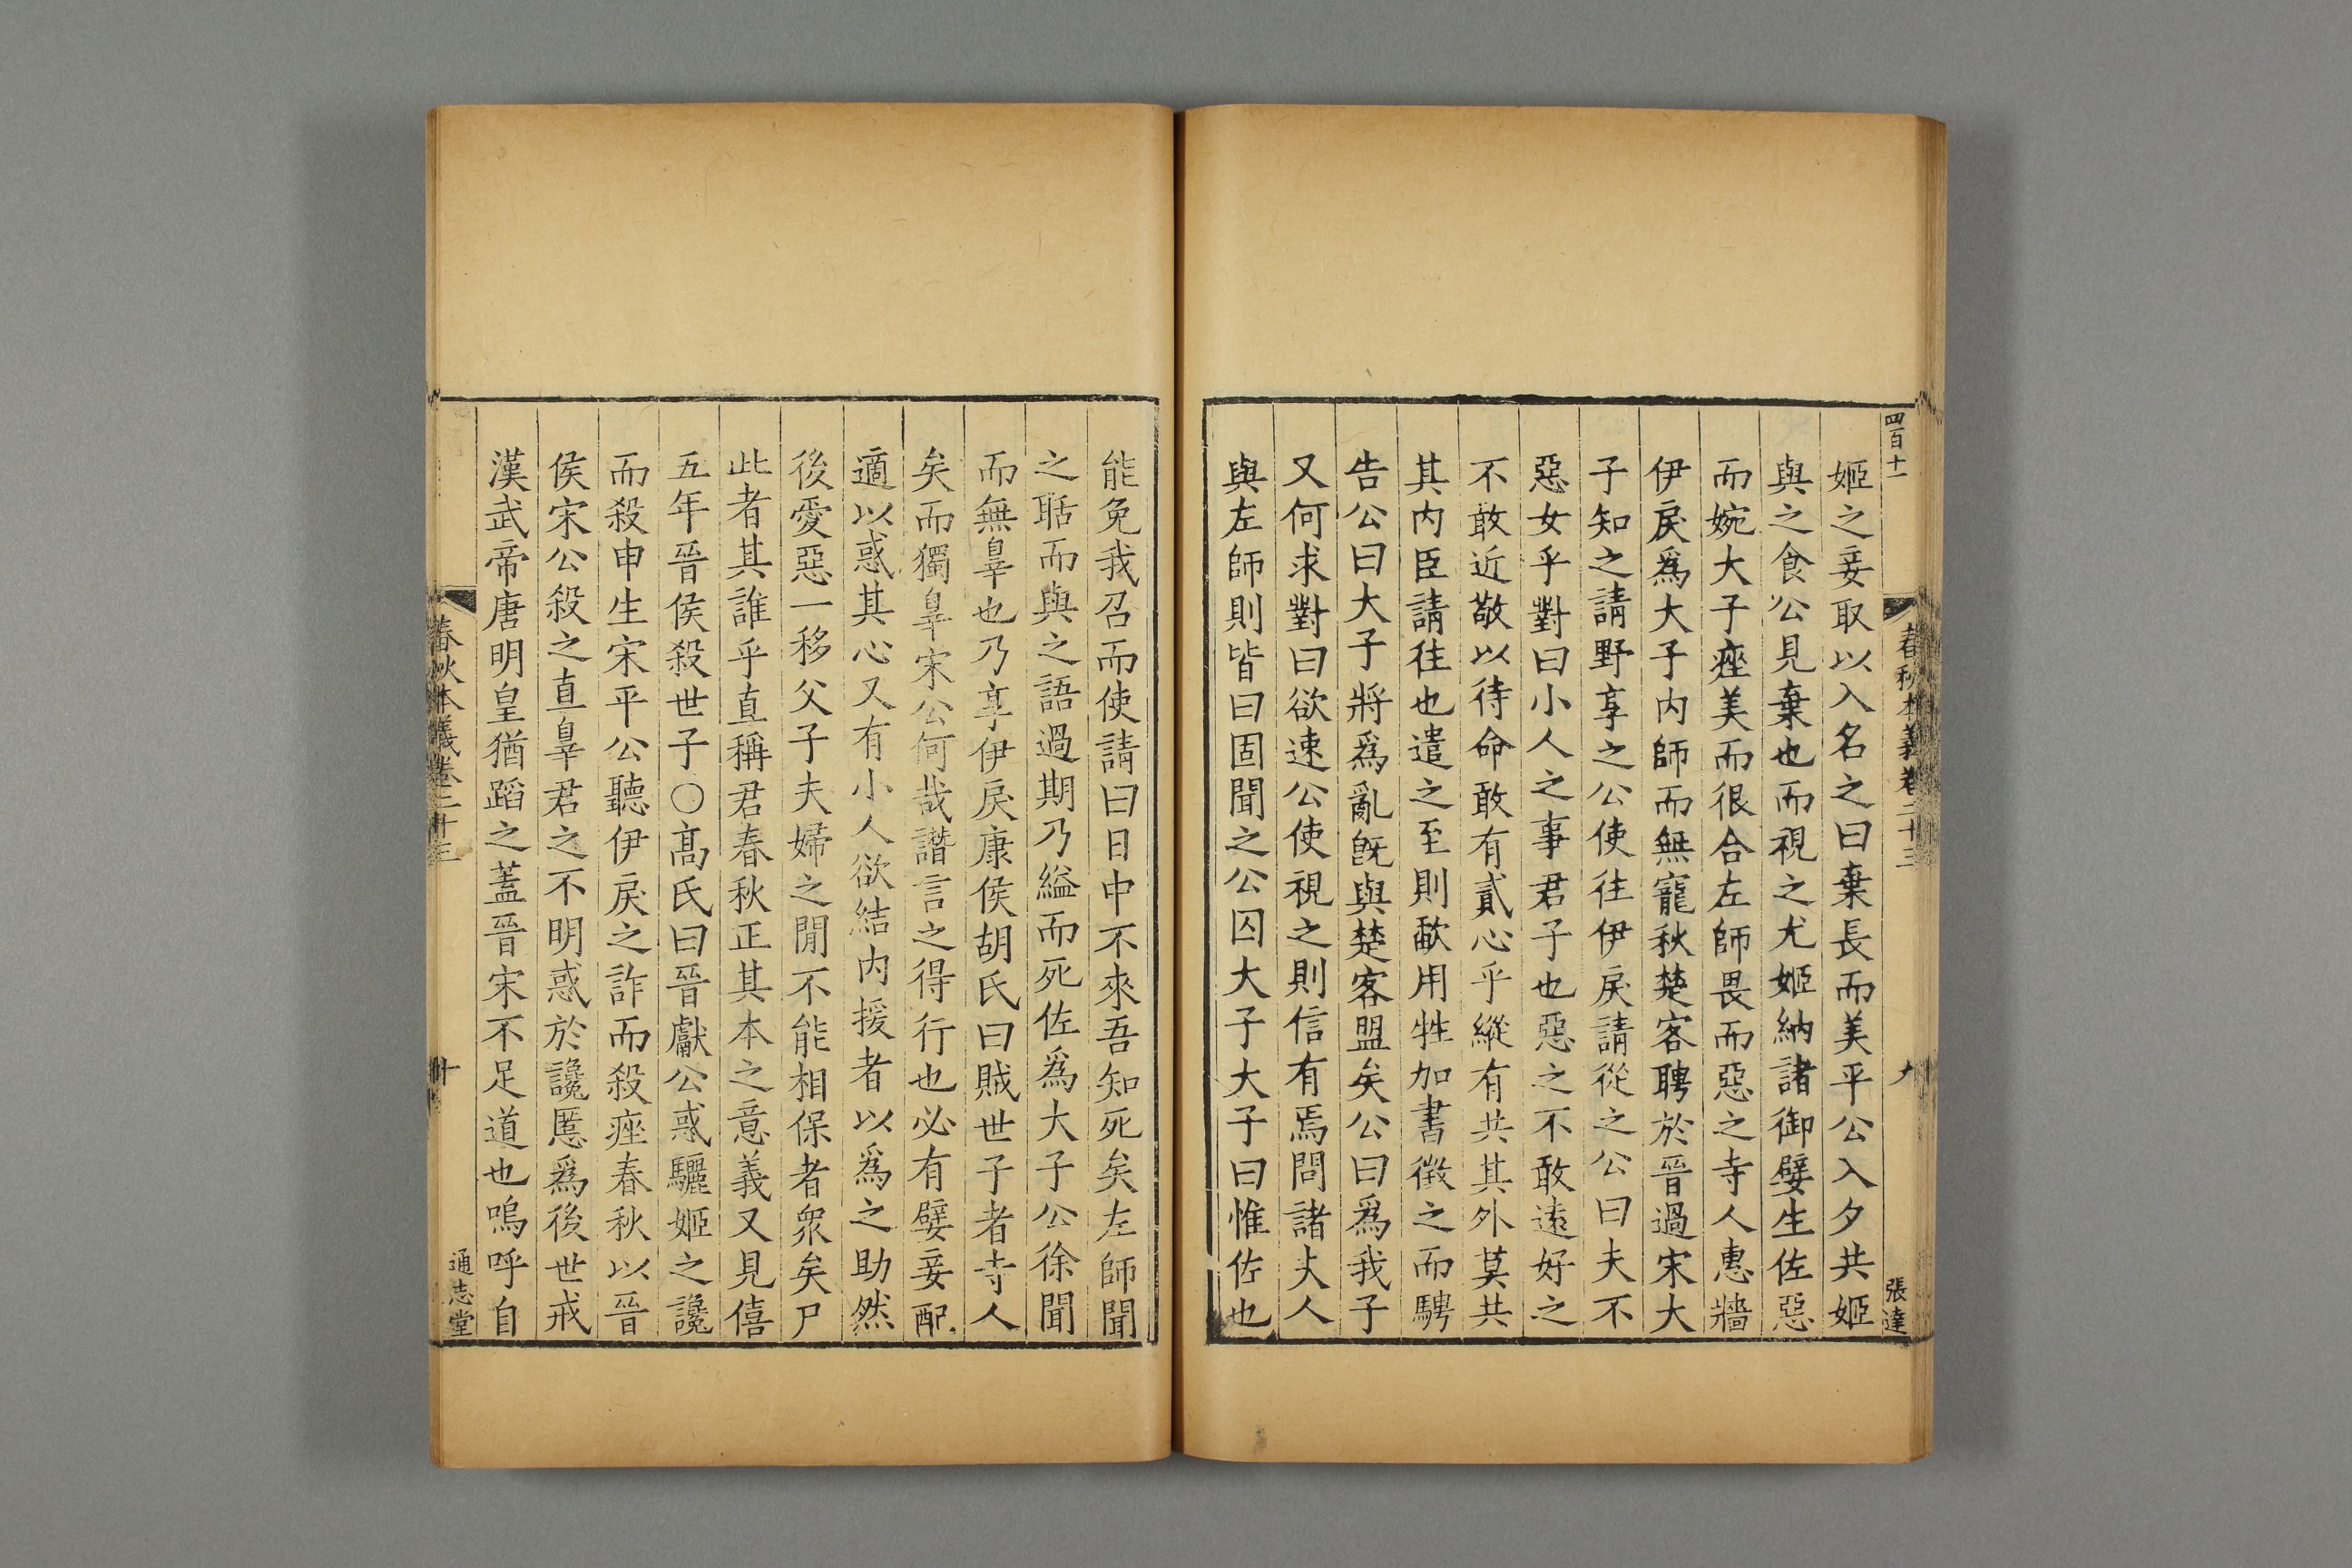 四百十一
春秋本義卷二十三
九
張達
姬之妾取以入名之曰棄長而美平公入夕共姬
與之食公見棄也而視之尤姬納諸御嬖生佐惡
而婉大子痤美而很合左師畏而惡之寺人惠牆
伊戾爲大子內師而無寵秋楚客聘於晉過宋大
子知之請野享之公使往伊戾請從之公曰夫不
惡女乎對曰小人之事君子也惡之不敢遠好之
不敢近敬以待命敢有貳心乎縱有共其外莫共
其內臣請往也遣之至則歃用牲加書徵之而騁
告公曰大子將爲亂旣與楚客盟矣公曰爲我子
又何求對曰欲速公使視之則信有焉問諸夫人
與左師則皆曰固聞之公囚大子大子曰惟佐也
能免我召而使請曰日中不來吾知死矣左師聞
之聒而與之語過期乃縊而死佐爲大子公徐聞
而無辠也乃享伊戾康侯胡氏曰賊世子者寺人
矣而獨辠宋公何哉譖言之得行也必有嬖妾配
適以惑其心又有小人欲結內援者以爲之助然
後愛惡一移父子夫婦之閒不能相保者衆矣尸
此者其誰乎直稱君春秋正其本之意義又見僖
五年晉侯殺世子○高氏曰晉獻公惑驪姬之讒
而殺申生宋平公聽伊戾之詐而殺痤春秋以晉
侯宋公殺之直辠君之不明惑於讒慝爲後世戒
漢武帝唐明皇猶蹈之蓋晉宋不足道也嗚呼自
春秋本義卷二十三
十
通志堂